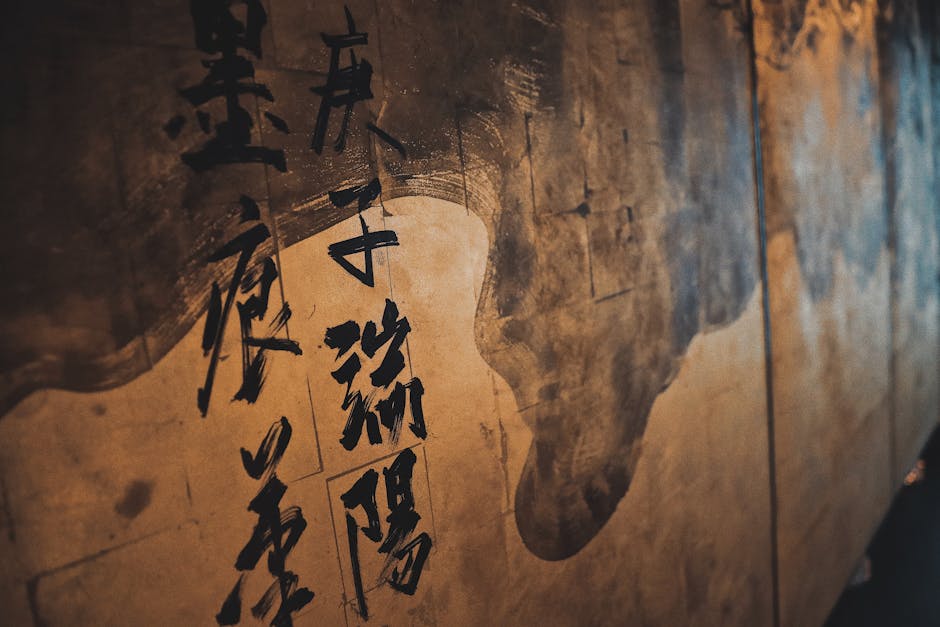 庚子端陽
墨痕